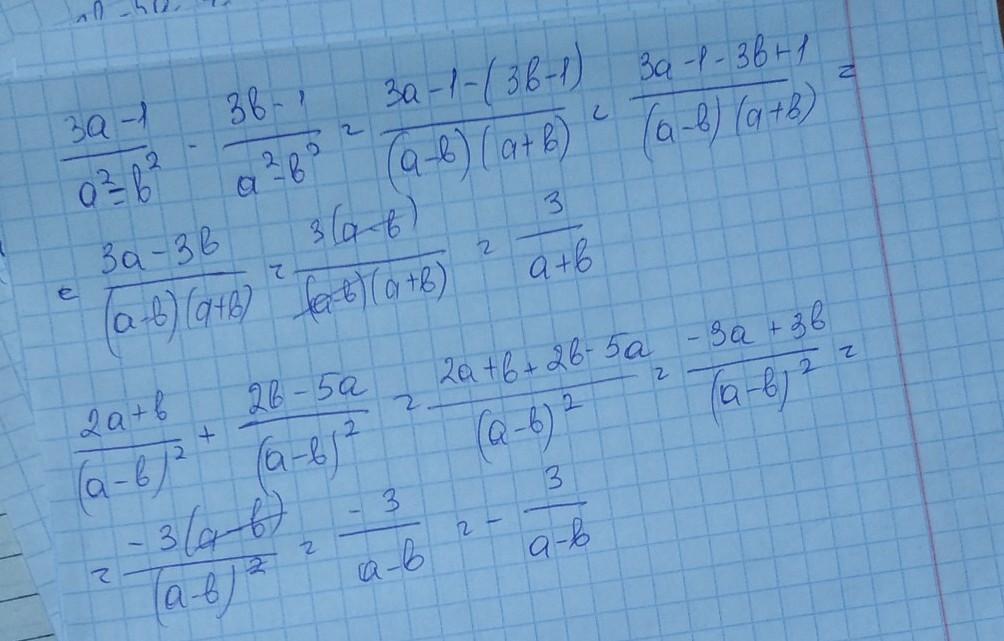 (3a-1)/(a²-b²) - (3b-1)/(a²-b²) = (3a-1-(3b-1))/((a-b)(a+b)) = (3a-1-3b+1)/((a-b)(a+b)) =
= (3a-3b)/((a-b)(a+b)) = 3(a-b)/((a-b)(a+b)) = 3/(a+b)
(2a+b)/(a-b)² + (2b-5a)/(a-b)² = (2a+b+2b-5a)/(a-b)² = (-3a+3b)/(a-b)² =
= -3(a-b)/(a-b)² = -3/(a-b) = - 3/(a-b)